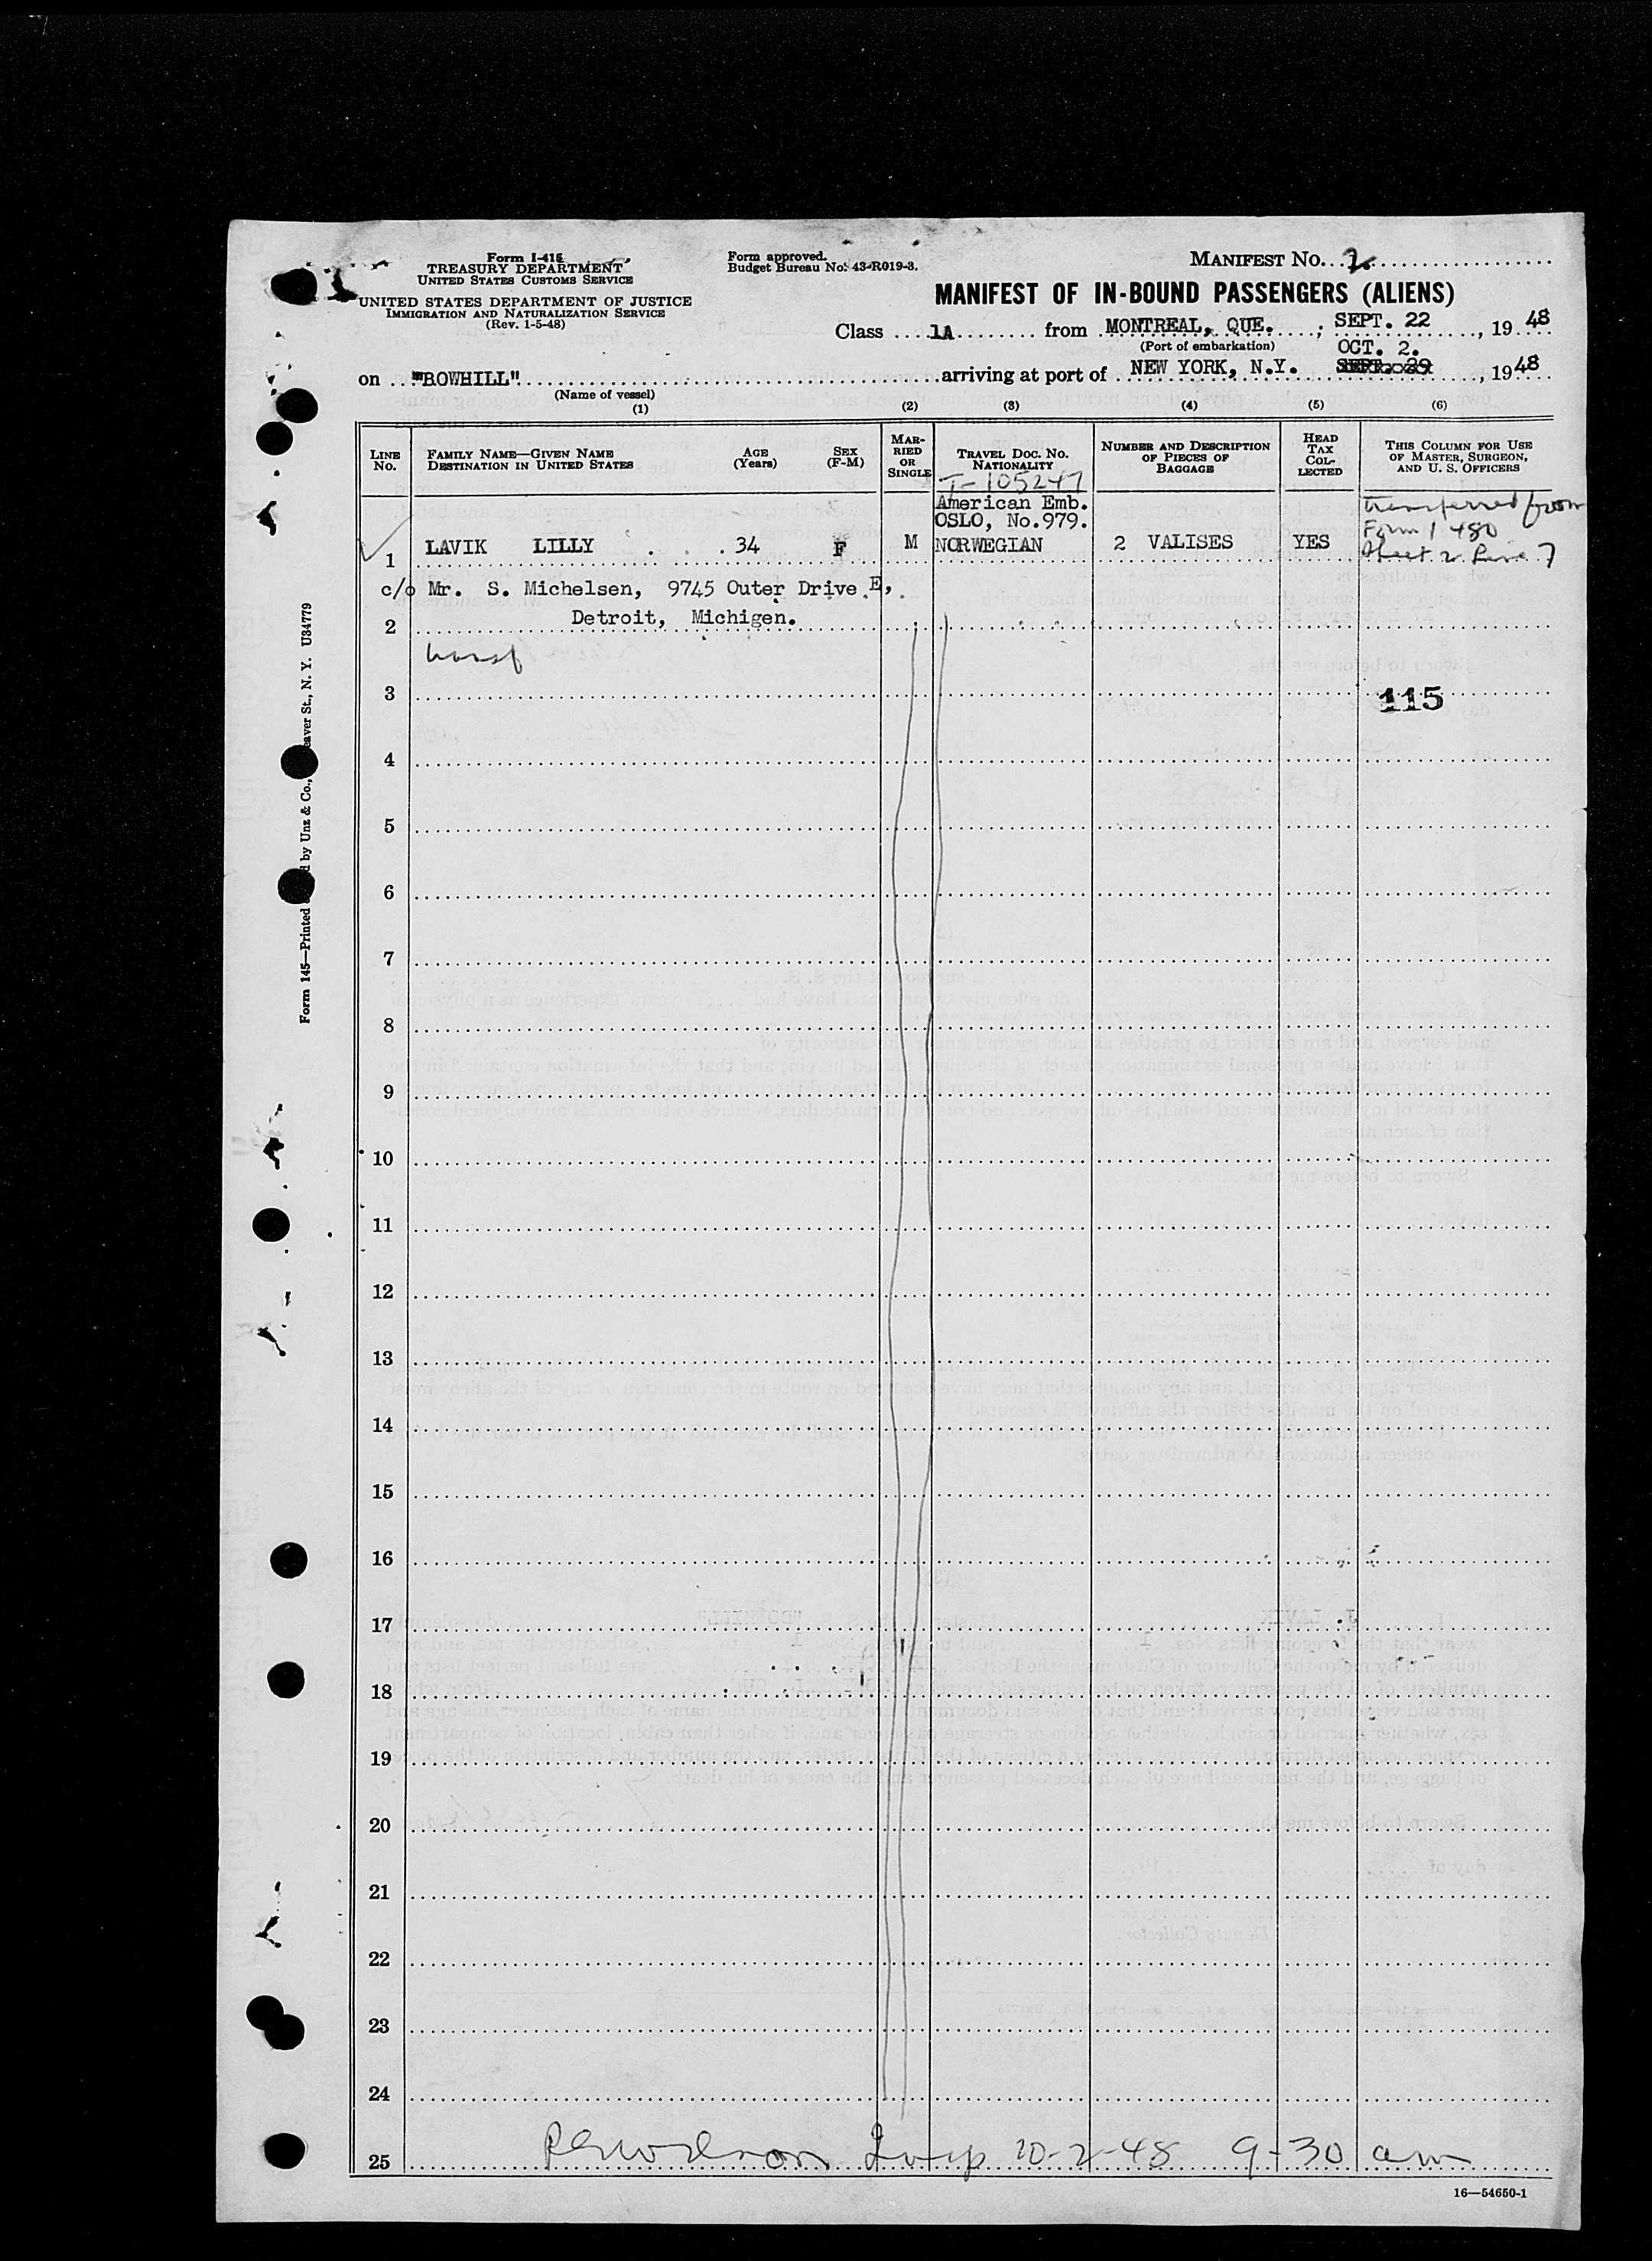 Form I-415
TREASURY DEPARTMENT
UNITED STATES CUSTOMS SERVICE
UNITED STATES DEPARTMENT OF JUSTICE
IMMIGRATION AND NATURALIZATION SERVICE
(Rev. 1-5-48)
Form approved.
Budget Bureau No. 43-R019-3.
MANIFEST NO. 2
MANIFEST OF IN-BOUND PASSENGERS (ALIENS)
Class 1A from MONTREAL, QUE. ; SEPT. 22, 1948
(Port of embarkation) OCT. 2.
on "ROWHILL" arriving at port of NEW YORK, N.Y. SEPT. 29, 1948
(Name of vessel)
(1) (2) (3) (4) (5) (6)
LINE No.
FAMILY NAME—GIVEN NAME
DESTINATION IN UNITED STATES
AGE (Years)
SEX (F-M)
MARRIED OR SINGLE
TRAVEL DOC. NO.
NATIONALITY
NUMBER AND DESCRIPTION OF PIECES OF BAGGAGE
HEAD TAX COLLECTED
THIS COLUMN FOR USE OF MASTER, SURGEON, AND U. S. OFFICERS
T-105247
American Emb.
OSLO, No.979.
transferred from
Form I 480
Sheet 2 Line 7
1 LAVIK LILLY 34 F M NORWEGIAN 2 VALISES YES
c/o Mr. S. Michelsen, 9745 Outer Drive E,
2 Detroit, Michigen.
3
115
4
5
6
7
8
9
10
11
12
13
14
15
16
17
18
19
20
21
22
23
24
25 Insp 10-2-48 9-30 am
16—54650-1
Form 145—Printed by Unz & Co., St., N. Y. U34779